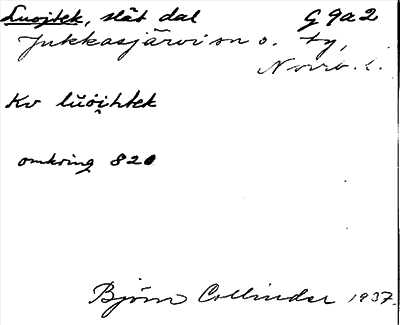 Luojtek, slät dal G 9a2
Jukkasjärvi sn o. ty,
Norrb. l.
Kv lŭoi̯htek
omkring 820
Björn Collinder 1937.